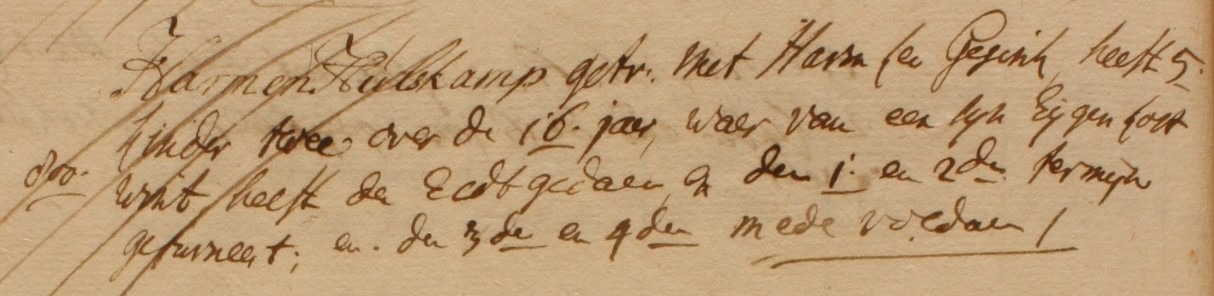 Harmen Hulskamp getr. met Harm sen Gesink, heeft 5
kinder twee over de 16. jaer, waer van een syn Eygen kost
wint heeft de Eedt gedaen en den 1. en 2de termyn
gefurneert, en de 3de en 4den mede voldaen /